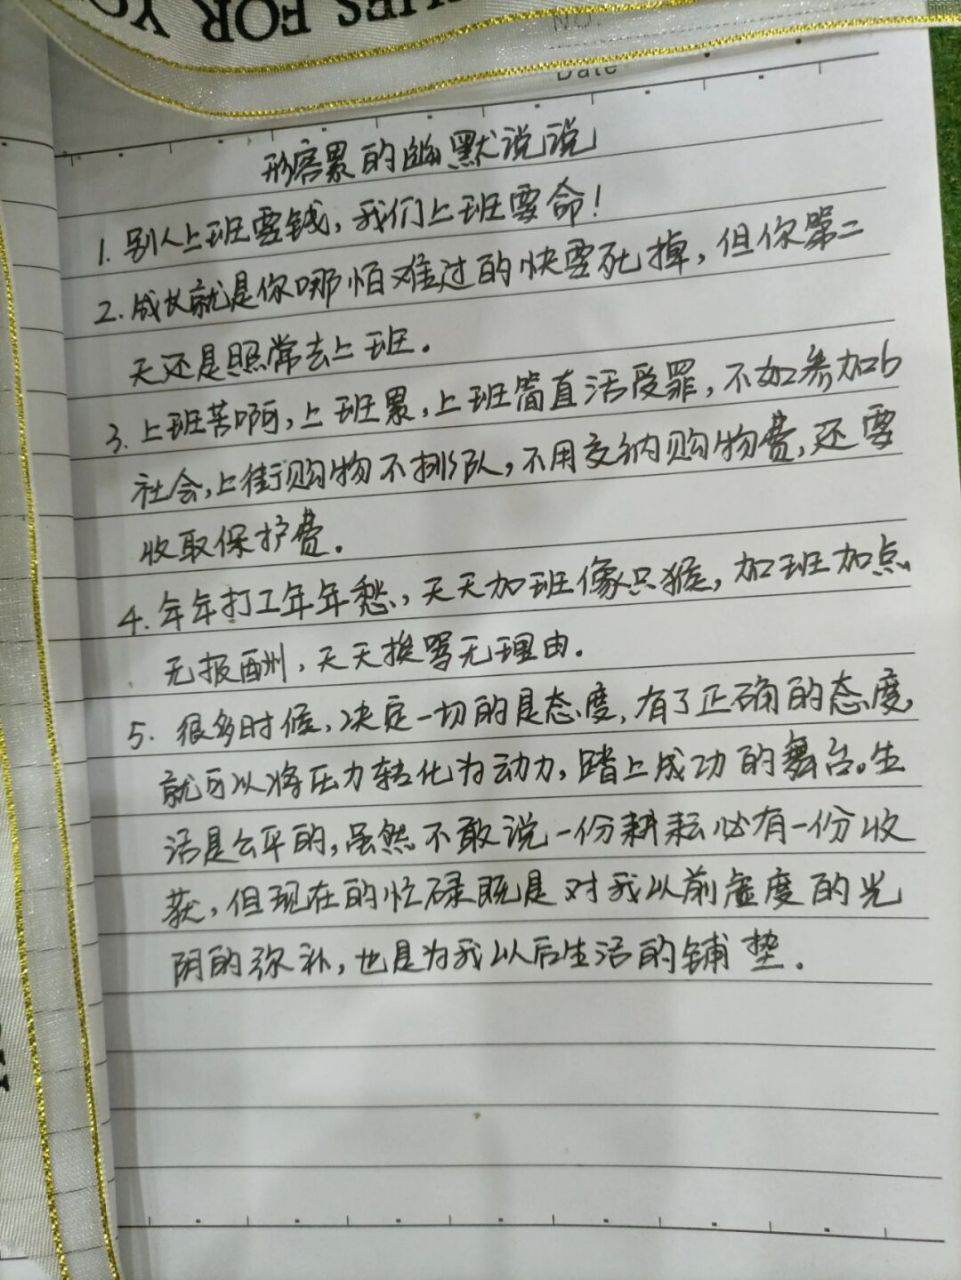 UES FOR YO
No.
Date
形容累的幽默说说
1. 别人上班要钱，我们上班要命！
2. 成长就是你哪怕难过的快要死掉，但你第二
天还是照常去上班。
3. 上班苦啊，上班累，上班简直活受罪，不如参加b
社会，上街购物不排队，不用交纳购物费，还要
收取保护费。
4. 年年打工年年愁，天天加班像只猴，加班加点
无报酬，天天挨骂无理由。
5. 很多时候，决定一切的是态度，有了正确的态度，
就可以将压力转化为动力，踏上成功的舞台。生
活是公平的，虽然不敢说一份耕耘必有一份收
获，但现在的忙碌既是对我以前虚度的光
阴的弥补，也是为我以后生活的铺垫。